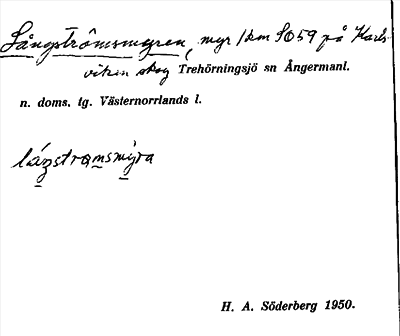 Långströmsmyren, myr 1 km SO59 på Karls-
viken skog Trehörningsjö sn Ångermanl.
n. doms. tg. Västernorrlands l.
låŋstramsmyra
H. A. Söderberg 1950.